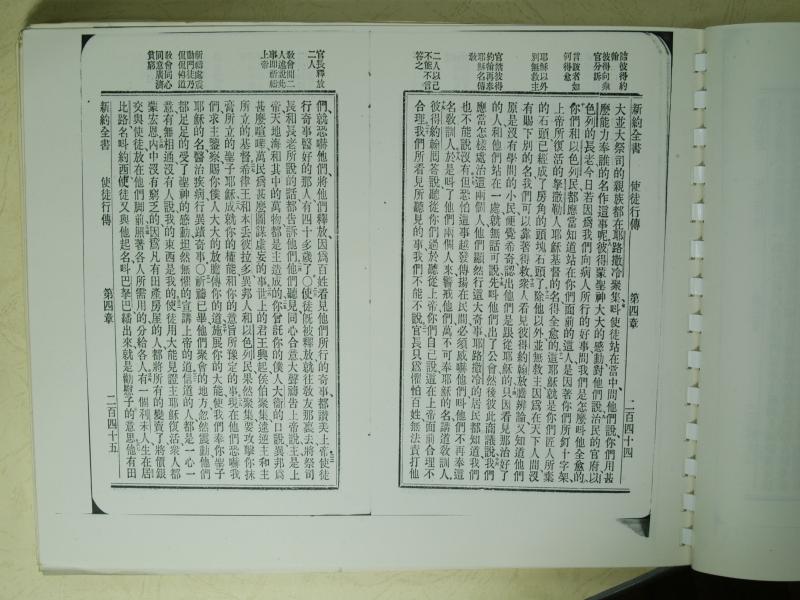 官分訴
言該者如何得愈
耶穌以外別無救主
二人以己不能不言答之
新約全書 使徒行傳 第四章 二百四十四
大並大祭司的親族都在耶路撒冷聚集叫使徒站在當中問他們說你們用甚
麼能力奉誰的名作這事呢彼得蒙聖神大大的感動對他們說治民的官府以
色列的長老今日若因爲我們向病人所行的好事問我們是怎麼叫他全愈的
你們和以色列民都應當知道站在你們面前的這人是因著你們所釘十字架
上帝所復活的拏撒勒人耶穌基督的名得全愈的這耶穌就是你們匠人所棄
的石頭已經成了房角的頭塊石頭了除他以外並無救主因爲在天下人間沒
有賜下別的名我們可以靠著得救衆人看見彼得約翰放膽辨論又知道他們
原是沒有學問的小民便覺希奇認出他們是跟從耶穌的只因看見那治好了
的人和他們站在一處就無話可說先叫他們出了公會然後彼此商議說我們
應當怎樣處治這兩個人他們顯然行這大奇事耶路撒冷的居民都知道我們
也不能說沒有但恐怕這事越發傳揚在民間必須威嚇他們叫他們不再奉這
名教訓人於是叫了他們兩個人來警戒他們萬不可奉耶穌的名講道教訓人
彼得約翰回答說聽從你們過於聽從上帝你們自己說這在上帝面前合理不
合理我們所看見所聽見的事我們不能不說官長只爲懼怕百姓無法責打他
官長釋放二人
教會聞二人述說此事卽祈禱上帝
新禱處震動門徒乃侃侃傳道
教會同心同意廣濟貧窮
們就恐嚇他們將他們釋放因爲百姓看見他們所行的奇事都讚美上帝使徒
行奇事醫好的那人有四十多歲了〇使徒旣被釋放就往敎友那裏去將祭司
長和長老所說的話都告訴他們他們聽見同心合意大聲禱告上帝說主是上
帝天地海和其中的萬物都是主造成的你曾託你的僕人大衛的口說異邦爲
甚麼喧嘩萬民爲甚麼圖謀虛妄的事世上的君王興起侯伯聚集違逆主和主
所立的基督希律王和本丟彼拉多異邦人和以色列民果然聚集要攻擊你抹
膏所立的聖子耶穌成就你的權能和你的意旨所豫定的事現在他們恐嚇我
們求主鑒察賜你僕人大大的放膽傳你的道施展你的大能使我們奉你聖子
耶穌的名醫治疾病行異蹟奇事〇祈禱已畢他們聚會的地方忽然震動他們
都足足的受了聖神的感動坦然無懼的宣講上帝的道信道的人都是一心一
意有無相通沒有人說我的東西是我的使徒用大能見證主耶穌復活衆人都
蒙宏恩內中沒有窮乏的因爲凡有田產房屋的人都將所有的變賣了將價銀
交與使徒放在他們脚前照著各人所需用的分給各人有一個利未人生在居
比路名叫約西使徒又與他起名叫巴拏巴繙出來就是勸慰子的意思他有田
新約全書 使徒行傳 第四章 二百四十五